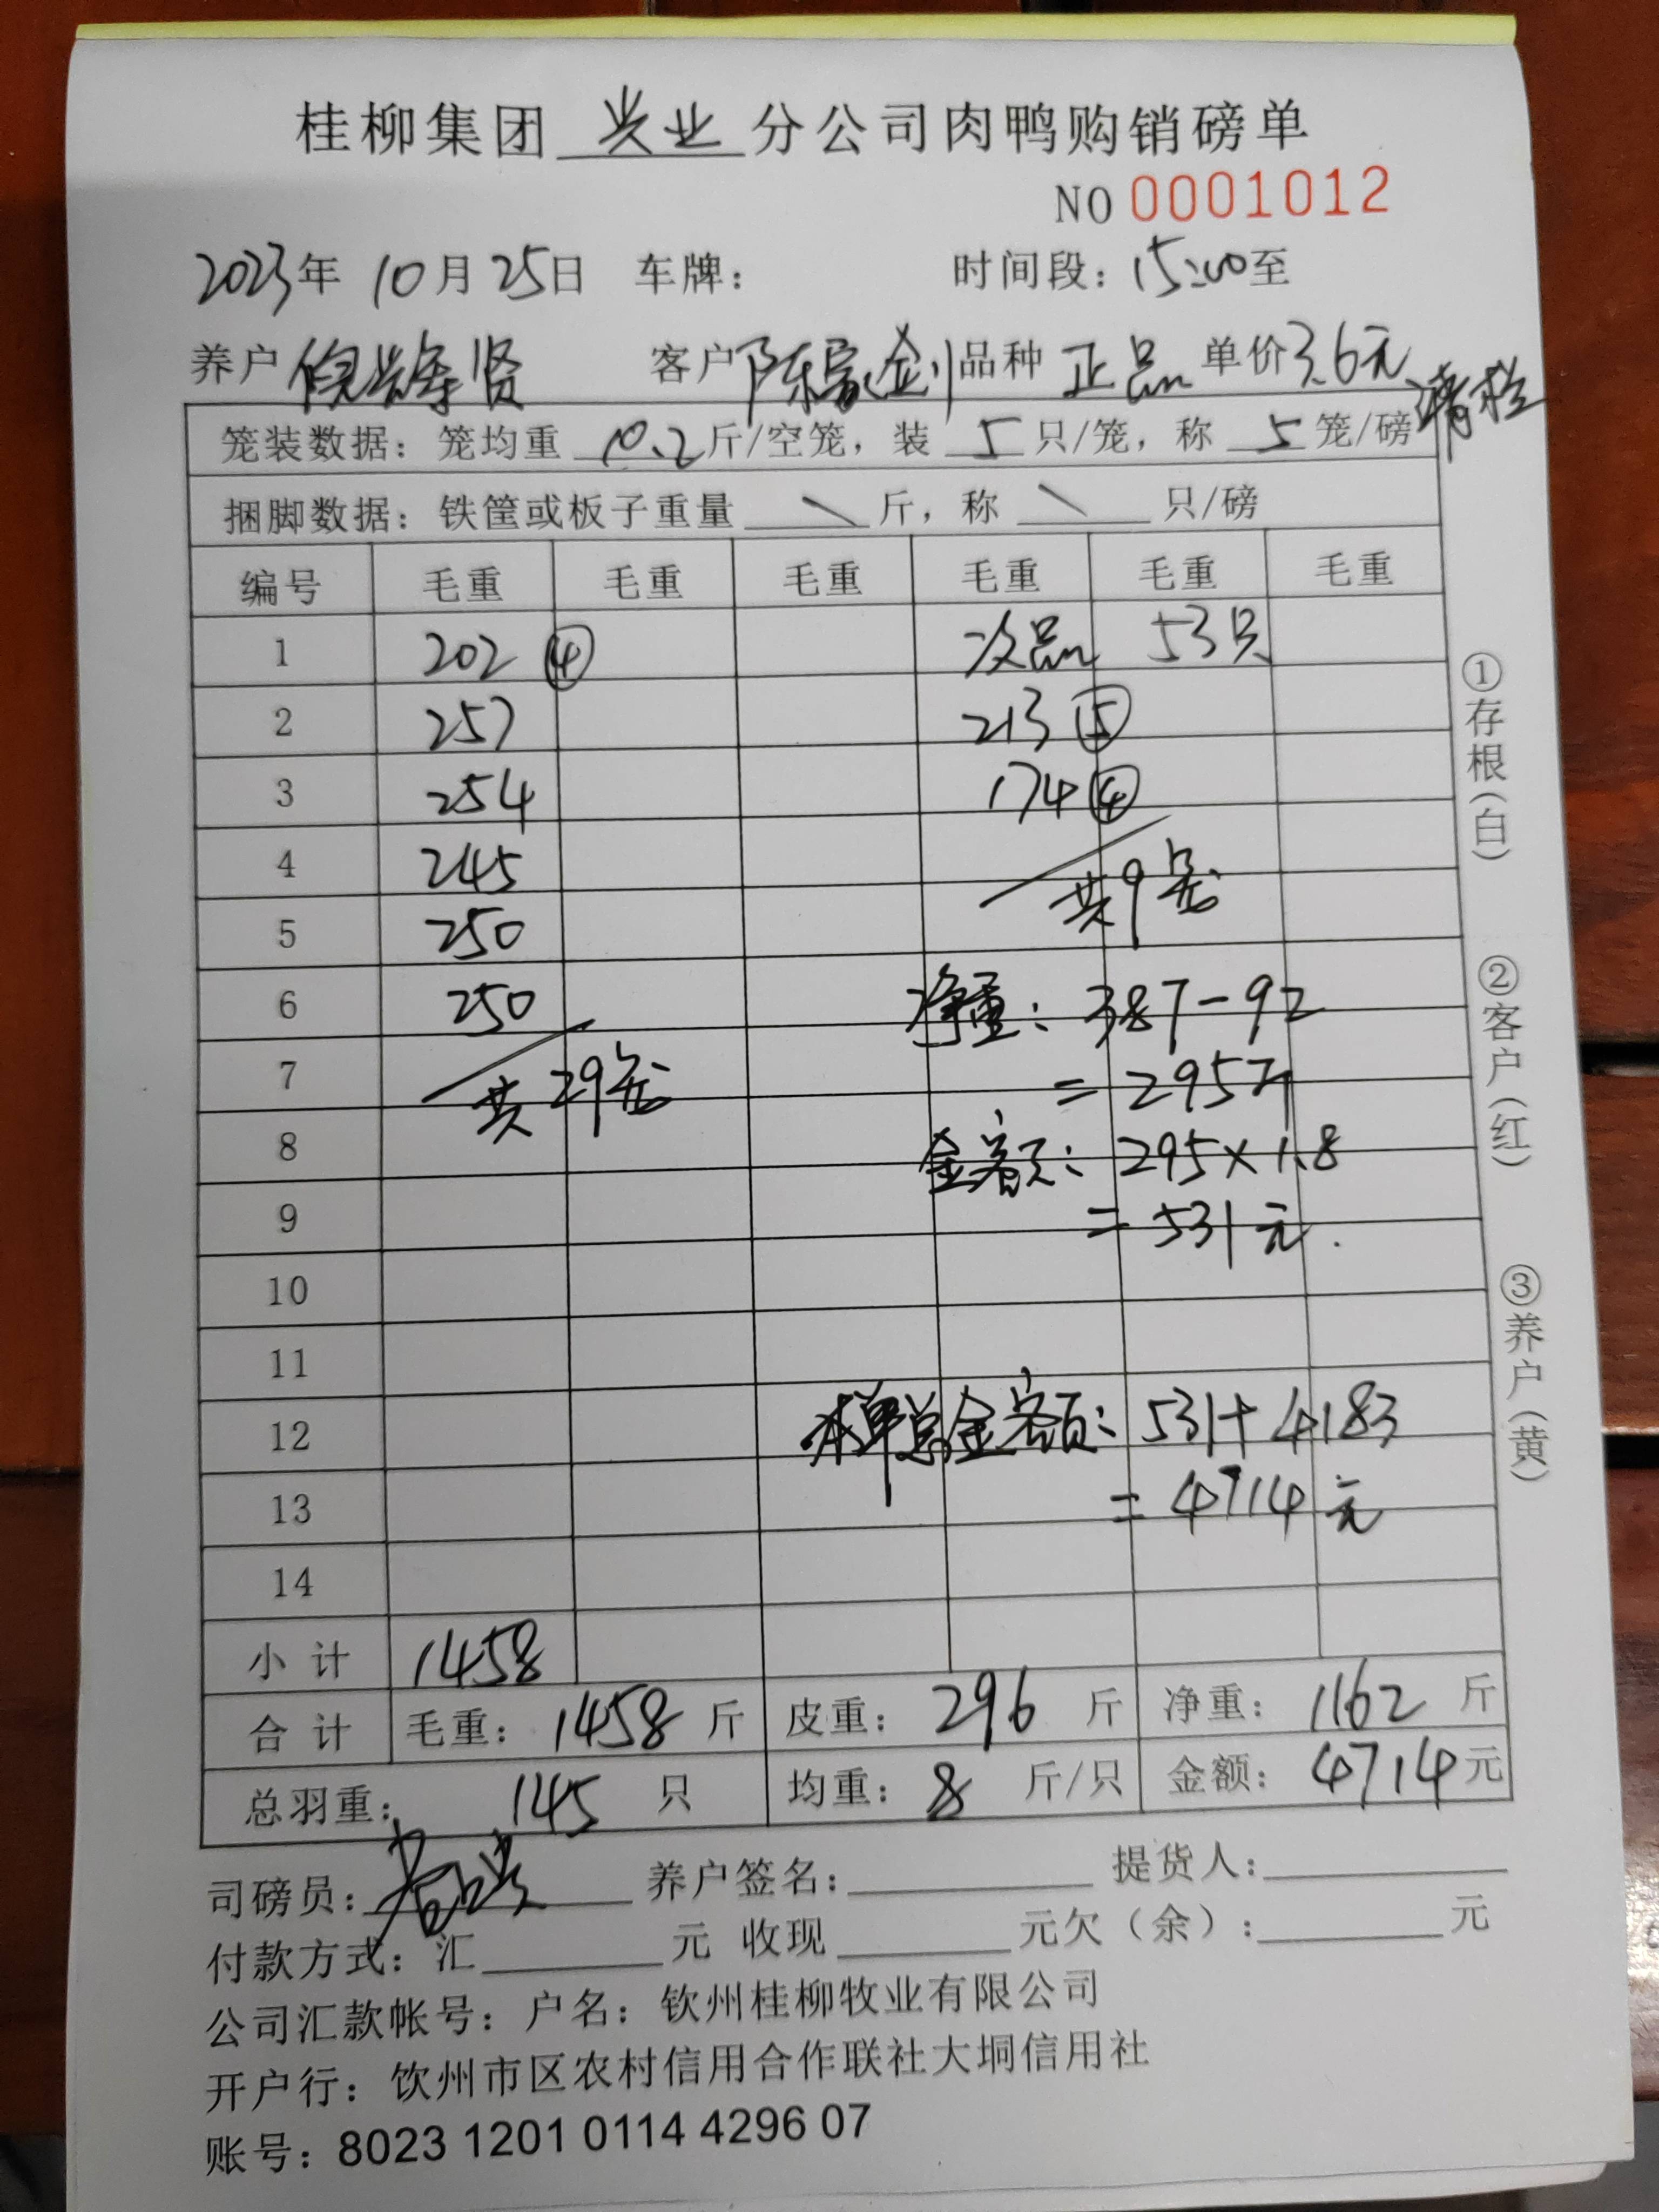 桂柳集团 兴业 分公司肉鸭购销磅单
NO 0001012
2023年 10月25日 车牌： 时间段：15:00至
养户 客户 陈家剑 品种 正品 单价3.6元
清栏
笼装数据：笼均重 10.2斤/空笼，装 5 只/笼，称 5 笼/磅
捆脚数据：铁筐或板子重量 \ 斤，称 \ 只/磅
编号 毛重 毛重 毛重 毛重 毛重 毛重
1 202 ④ 次品 53只
2 257 213 ⑤
3 254 174 ④
4 245 共9笼
5 250
6 250 净重：387-92
7 共29笼 =295斤
8 金额：295×1.8
9 =531元.
10
11
12 本单总金额：531+4183
13 =4714元
14
小计 1458
合计 毛重：1458斤 皮重：296 斤 净重：1162 斤
总羽重： 145 只 均重：8 斤/只 金额：4714元
司磅员： 养户签名： 提货人：
付款方式：汇 元 收现 元欠（余）： 元
公司汇款帐号：户名：钦州桂柳牧业有限公司
开户行：钦州市区农村信用合作联社大垌信用社
账号：8023 1201 0114 4296 07
①存根（白）
②客户（红）
③养户（黄）